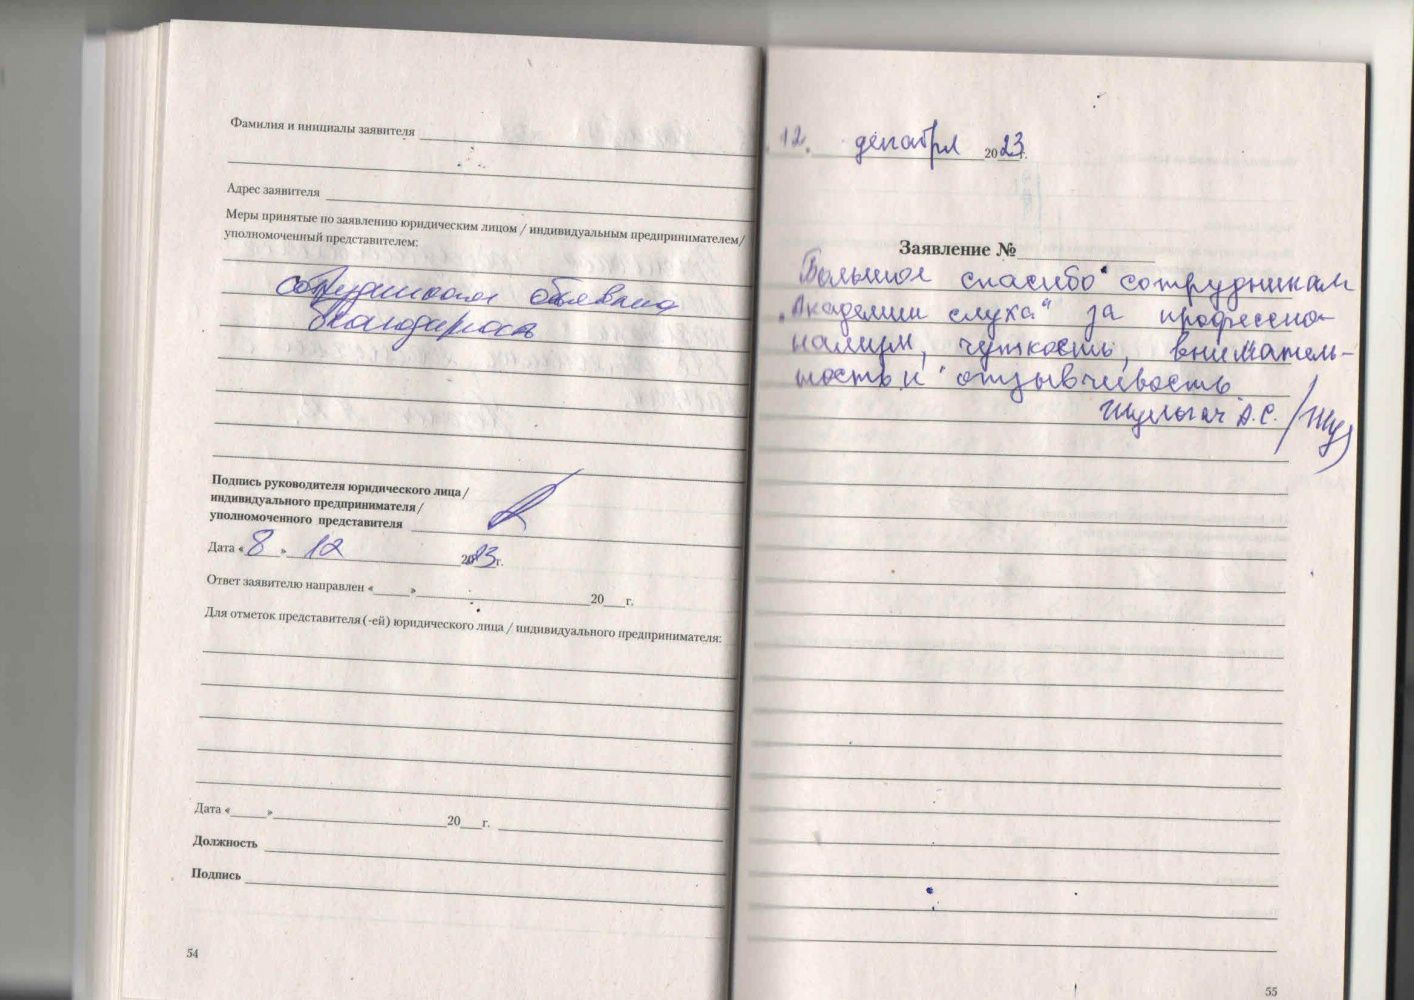 Фамилия и инициалы заявителя
Адрес заявителя
Меры принятые по заявлению юридическим лицом / индивидуальным предпринимателем/
уполномоченный представителем:
сотрудникам объявлена
благодарность
Подпись руководителя юридического лица/
индивидуального предпринимателя/
уполномоченного представителя
Дата «8» 12 2023г.
Ответ заявителю направлен «___»___20__г.
Для отметок представителя (-ей) юридического лица / индивидуального предпринимателя:
Дата «___»___20__г.
Должность
Подпись
54
12. декабря 2023г.
Заявление №
Большое спасибо сотрудникам
„Академии слуха" за профессио-
нализм, чуткость, вниматель-
ность и отзывчивость
А.С./
55